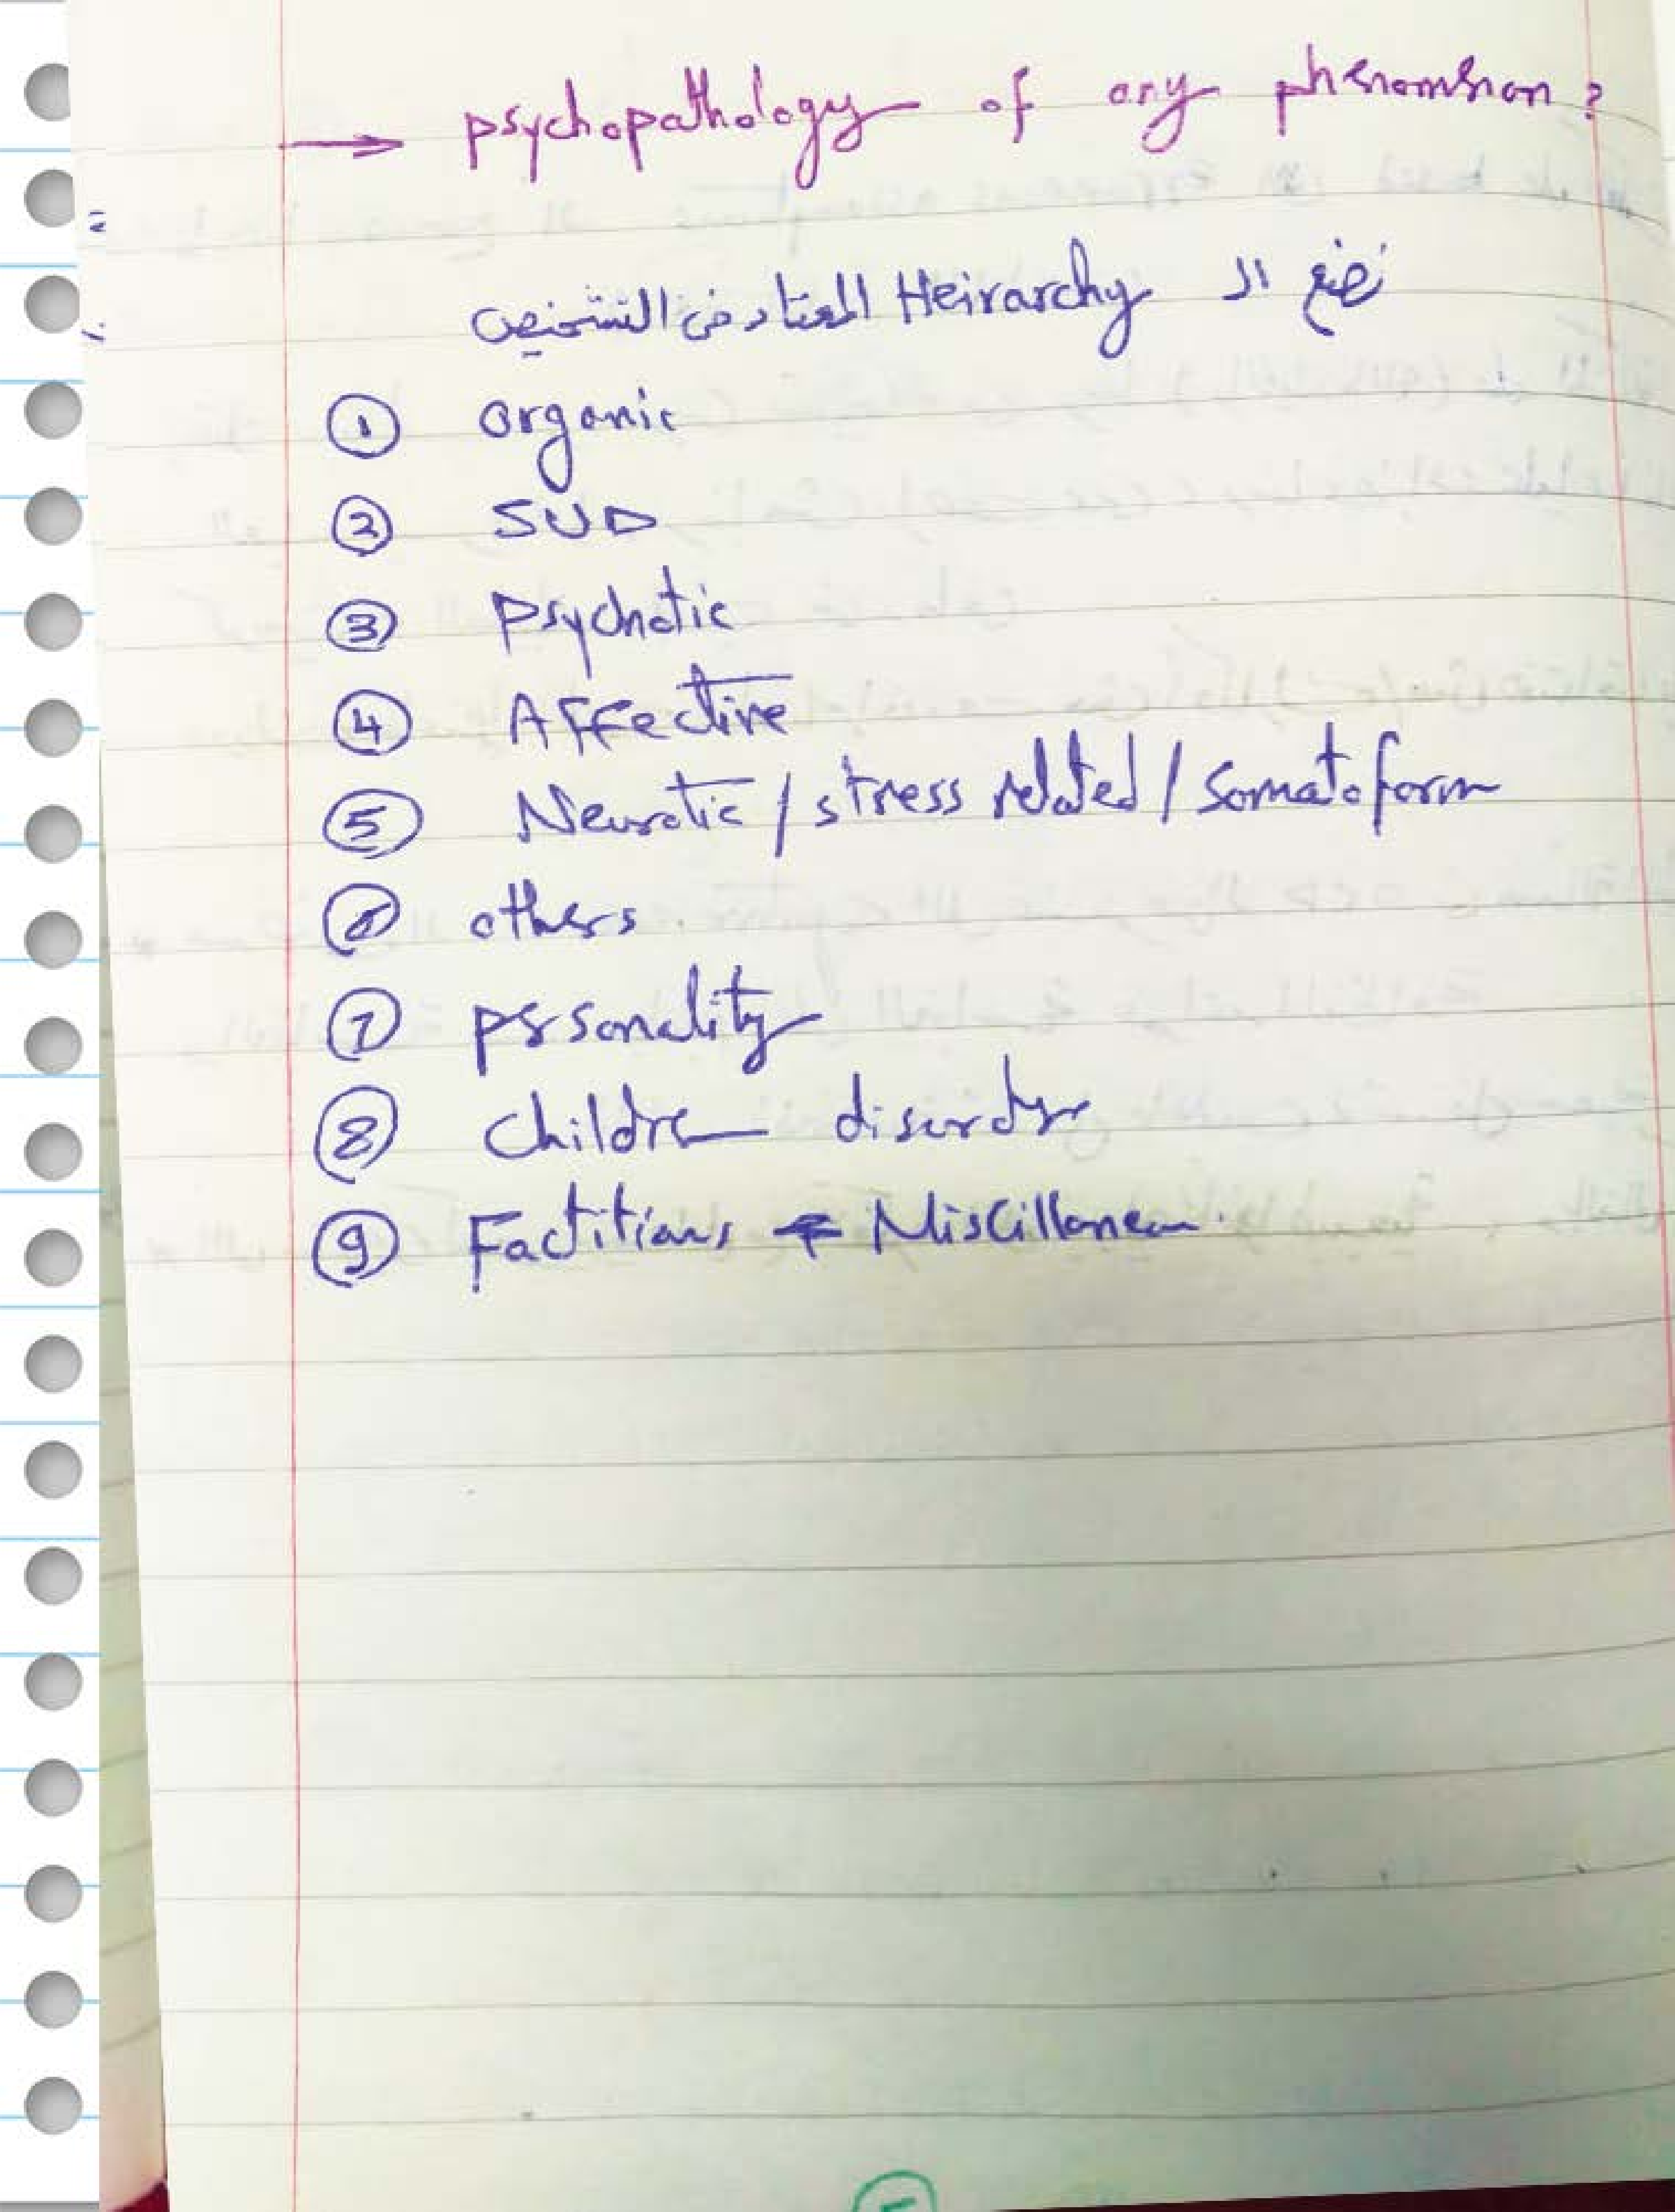 → psychopathology of any phenomenon?
نضع الـ Heirarchy المعتاد في التشخيص
① organic
② SUD
③ Psychotic
④ Affective
⑤ Neurotic / stress related / Somatoform
⑥ others
⑦ personality
⑧ Children disorder
⑨ Factitious